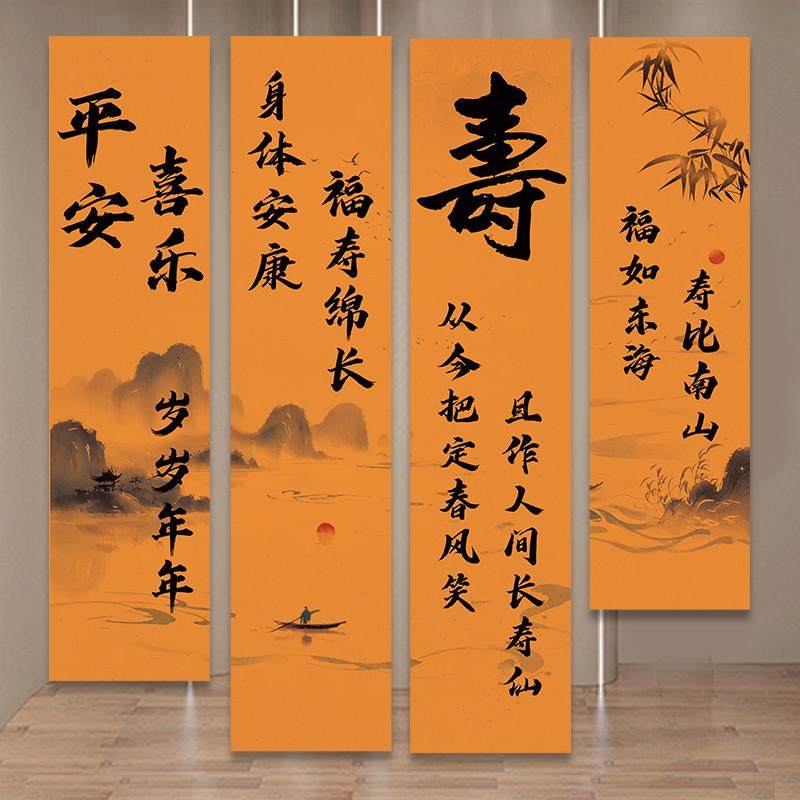 平安
喜乐
岁岁年年
身体安康
福寿绵长
壽
从今把定春风笑
且作人间长寿仙
福如东海
寿比南山